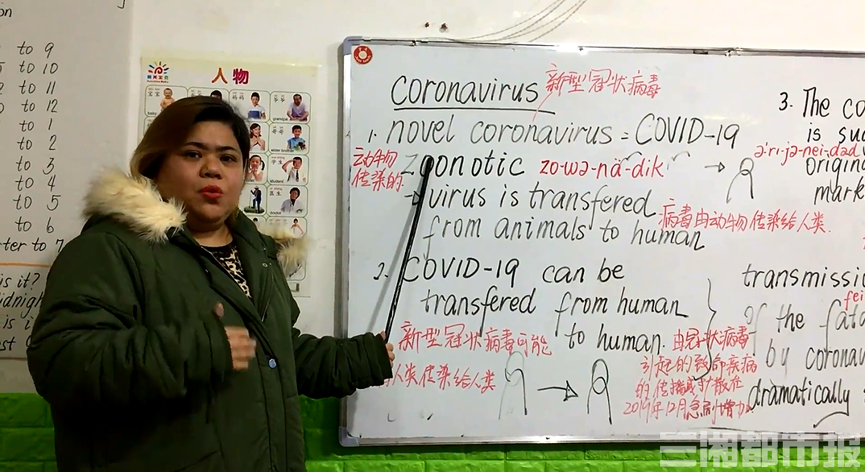 to 9
to 10
to 11
to 12
to 1
to 2
to 3
to 4
to 5
to 6
to 7
is it?
人物
coronavirus
新型冠状病毒
1. novel coronavirus = COVID-19
动物
传染的
zoonotic zo-wə-nä-dik
→ virus is transfered
from animals to human
病毒由动物传染给人类
2. COVID-19 can be
transfered from human
to human.
新型冠状病毒可能
人类传染给人类
由冠状病毒
引起的致命疾病
2019年12月急剧增加
3. The co
is su
ə-ri-jə-nei-dəd
origin
mark
transmissi
fei
of the fata
by corona
dramatically
三湘都市报